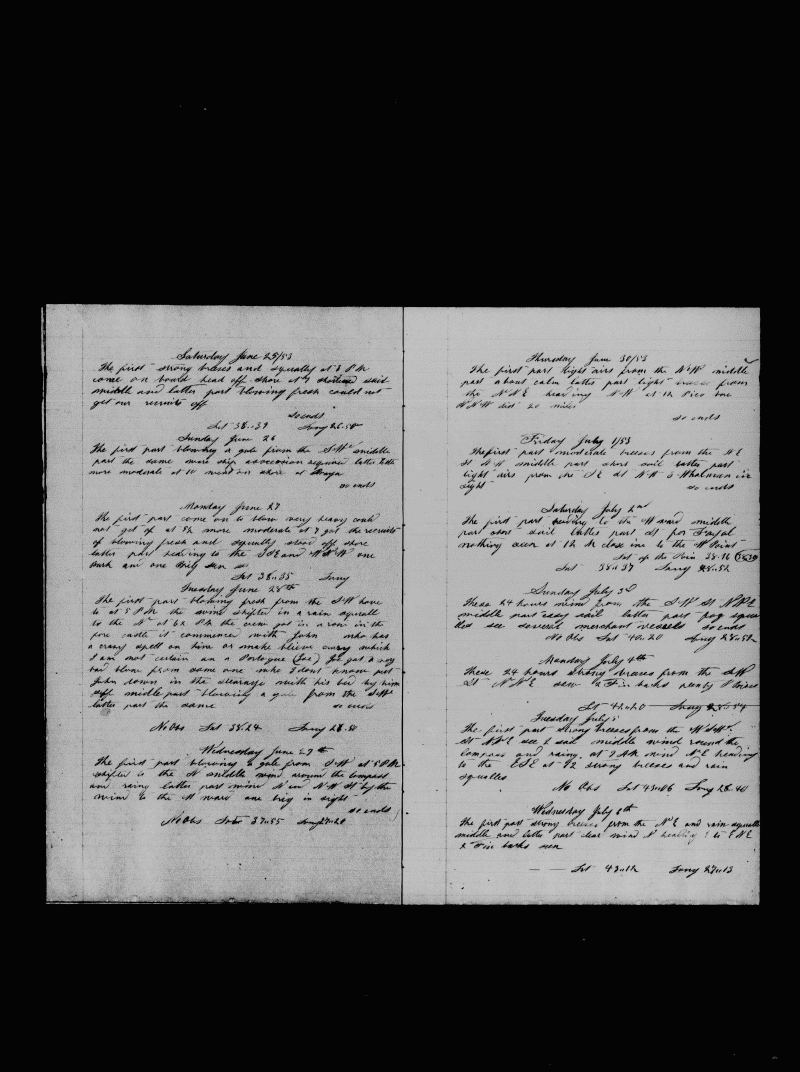 Saturday June 25/53
The first strong breeses and squally at 8 P M
come on board head off shore sail
middle and latter part blowing fresh could not
get our recruits off
so ends
Lat 38..39 Long
Sunday June 26
The first part blowing a gale from the S.W middle
part the same latter
more moderate at 10 went on shore at
so ends
Monday June 27
The first part come on to blow very heavy could
not get of at more moderate at 7 got the recruits
of blowing fresh and squally stood off shore
latter part heading to the S S E and W N W one
bark am one Brig seen
Lat 38..35 Long
Tuesday June 28th
The first part blowing fresh from the S W hove
to at 5 P M the wind shifted in a rain squall
to the N at P M the crew got in a row in the
fore castle it commenced with John who has
a crazy spell on him or make believe crazy which
I am not certain an a Portogue (Joe) Joe got a
bad blow from some one who I dont know put
John down in the stearage with his bed by him
self middle part blowing a gale from the S W
latter part the same so ends
No Obs Lat 38.24 Long 28.50
Wednesday June 29th
The first part blowing a gale from S W at 5 P M
shifted to the N middle wind around the compass
am rainy latter part wind N W St by the
wind to the W ward one brig in sight
so ends
No Obs Lat 37..55 Long 27..20
Thursday June 30/53
The first part light airs from the N W middle
part about calm latter part light breeses from
the N N E heading N W at 12 Pico bore
W N W dist 20 miles
so ends
Friday July 1/53
The first part moderate breeses from the N E
St N W middle part short sail latter part
light airs from the S E St N W 3 Whalman in
sight so ends
Saturday July 2nd
The first part heading to the W ward middle
part short sail latter part St for Fayal
nothing seen at 12 M close in to the W Point
Lat of the Poin 38.36 (38.30)
Lat 38..37 Long 28..52
Sunday July 3d
These 24 hours wind from the S W St N N E
middle part easy sail latter part fog squa
lles see several merchant vessels so ends
No Obs Lat 40..20 Long 28..52
Monday July 4th
These 24 hours strong breeses from the S W
St N N E saw 2 Fin backs plenty P
Lat 42..20 Long 28..54
Tuesday July 5
The first part strong breeses from the W S W
St N N E see 1 sail middle wind round the
compass and rainy at 7 A M wind N E heading
to the E S E at 12 strong breeses and rain
squalles
No Obs Lat 43..06 Long 28.40
Wednesday July 6th
The first part strong breeses from the N E and rain squalls
middle and latter part clear wind N heading to E N E
2 Fin backs seen
Lat 43..12 Long 27..13